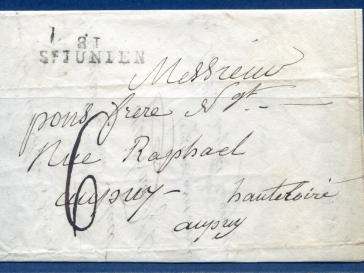 81
ST JUNIEN
Messieurs
pons frere Ngt
Rue Raphael
aupuy hauteloire
aupuy
6